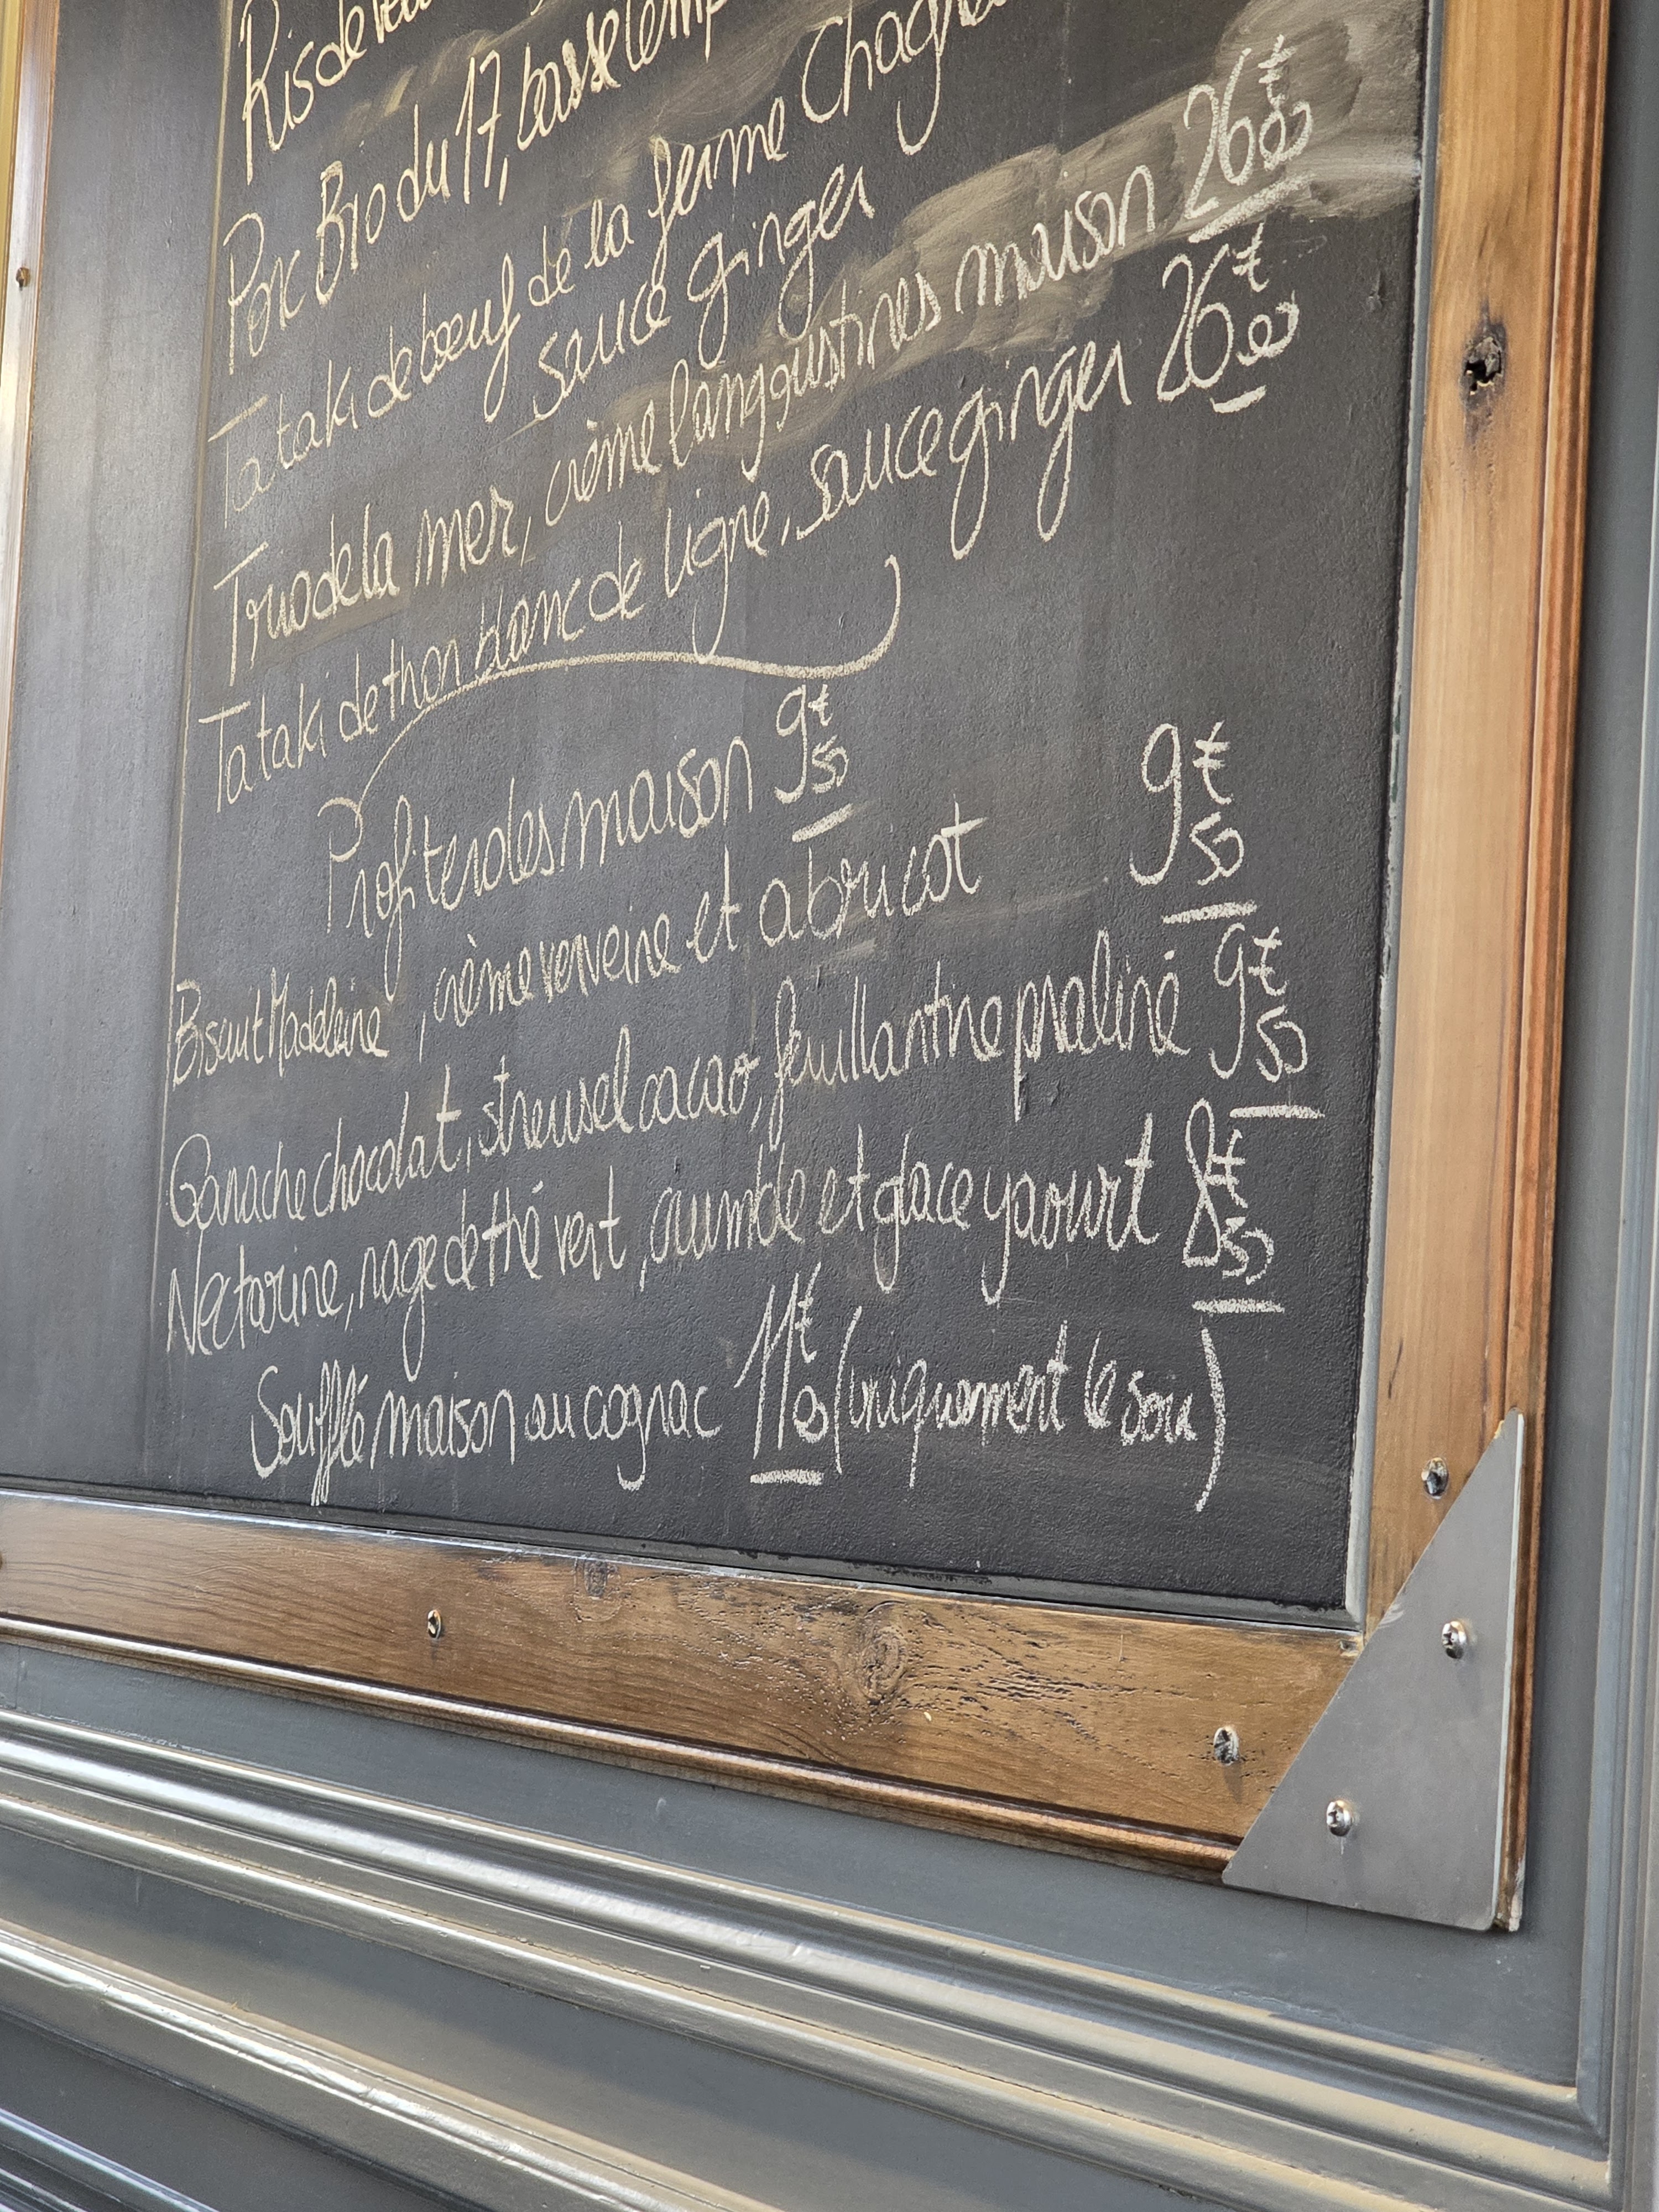 Ris de veau
Porc Bio du 17, basse temp
Tataki de bœuf de la ferme Chag
sauce ginger
Trio de la mer, crème langoustines maison 26€00
Tataki de thon blanc de ligne, sauce ginger 26€00
Profiteroles maison 9€50
Biscuit Madeleine, crème verveine et abricot 9€50
Ganache chocolat, streusel cacao, feuillantine praliné 9€50
Nectarine, nage de thé vert, crumble et glace yaourt 8€50
Soufflé maison au cognac 11€00 (uniquement le soir)